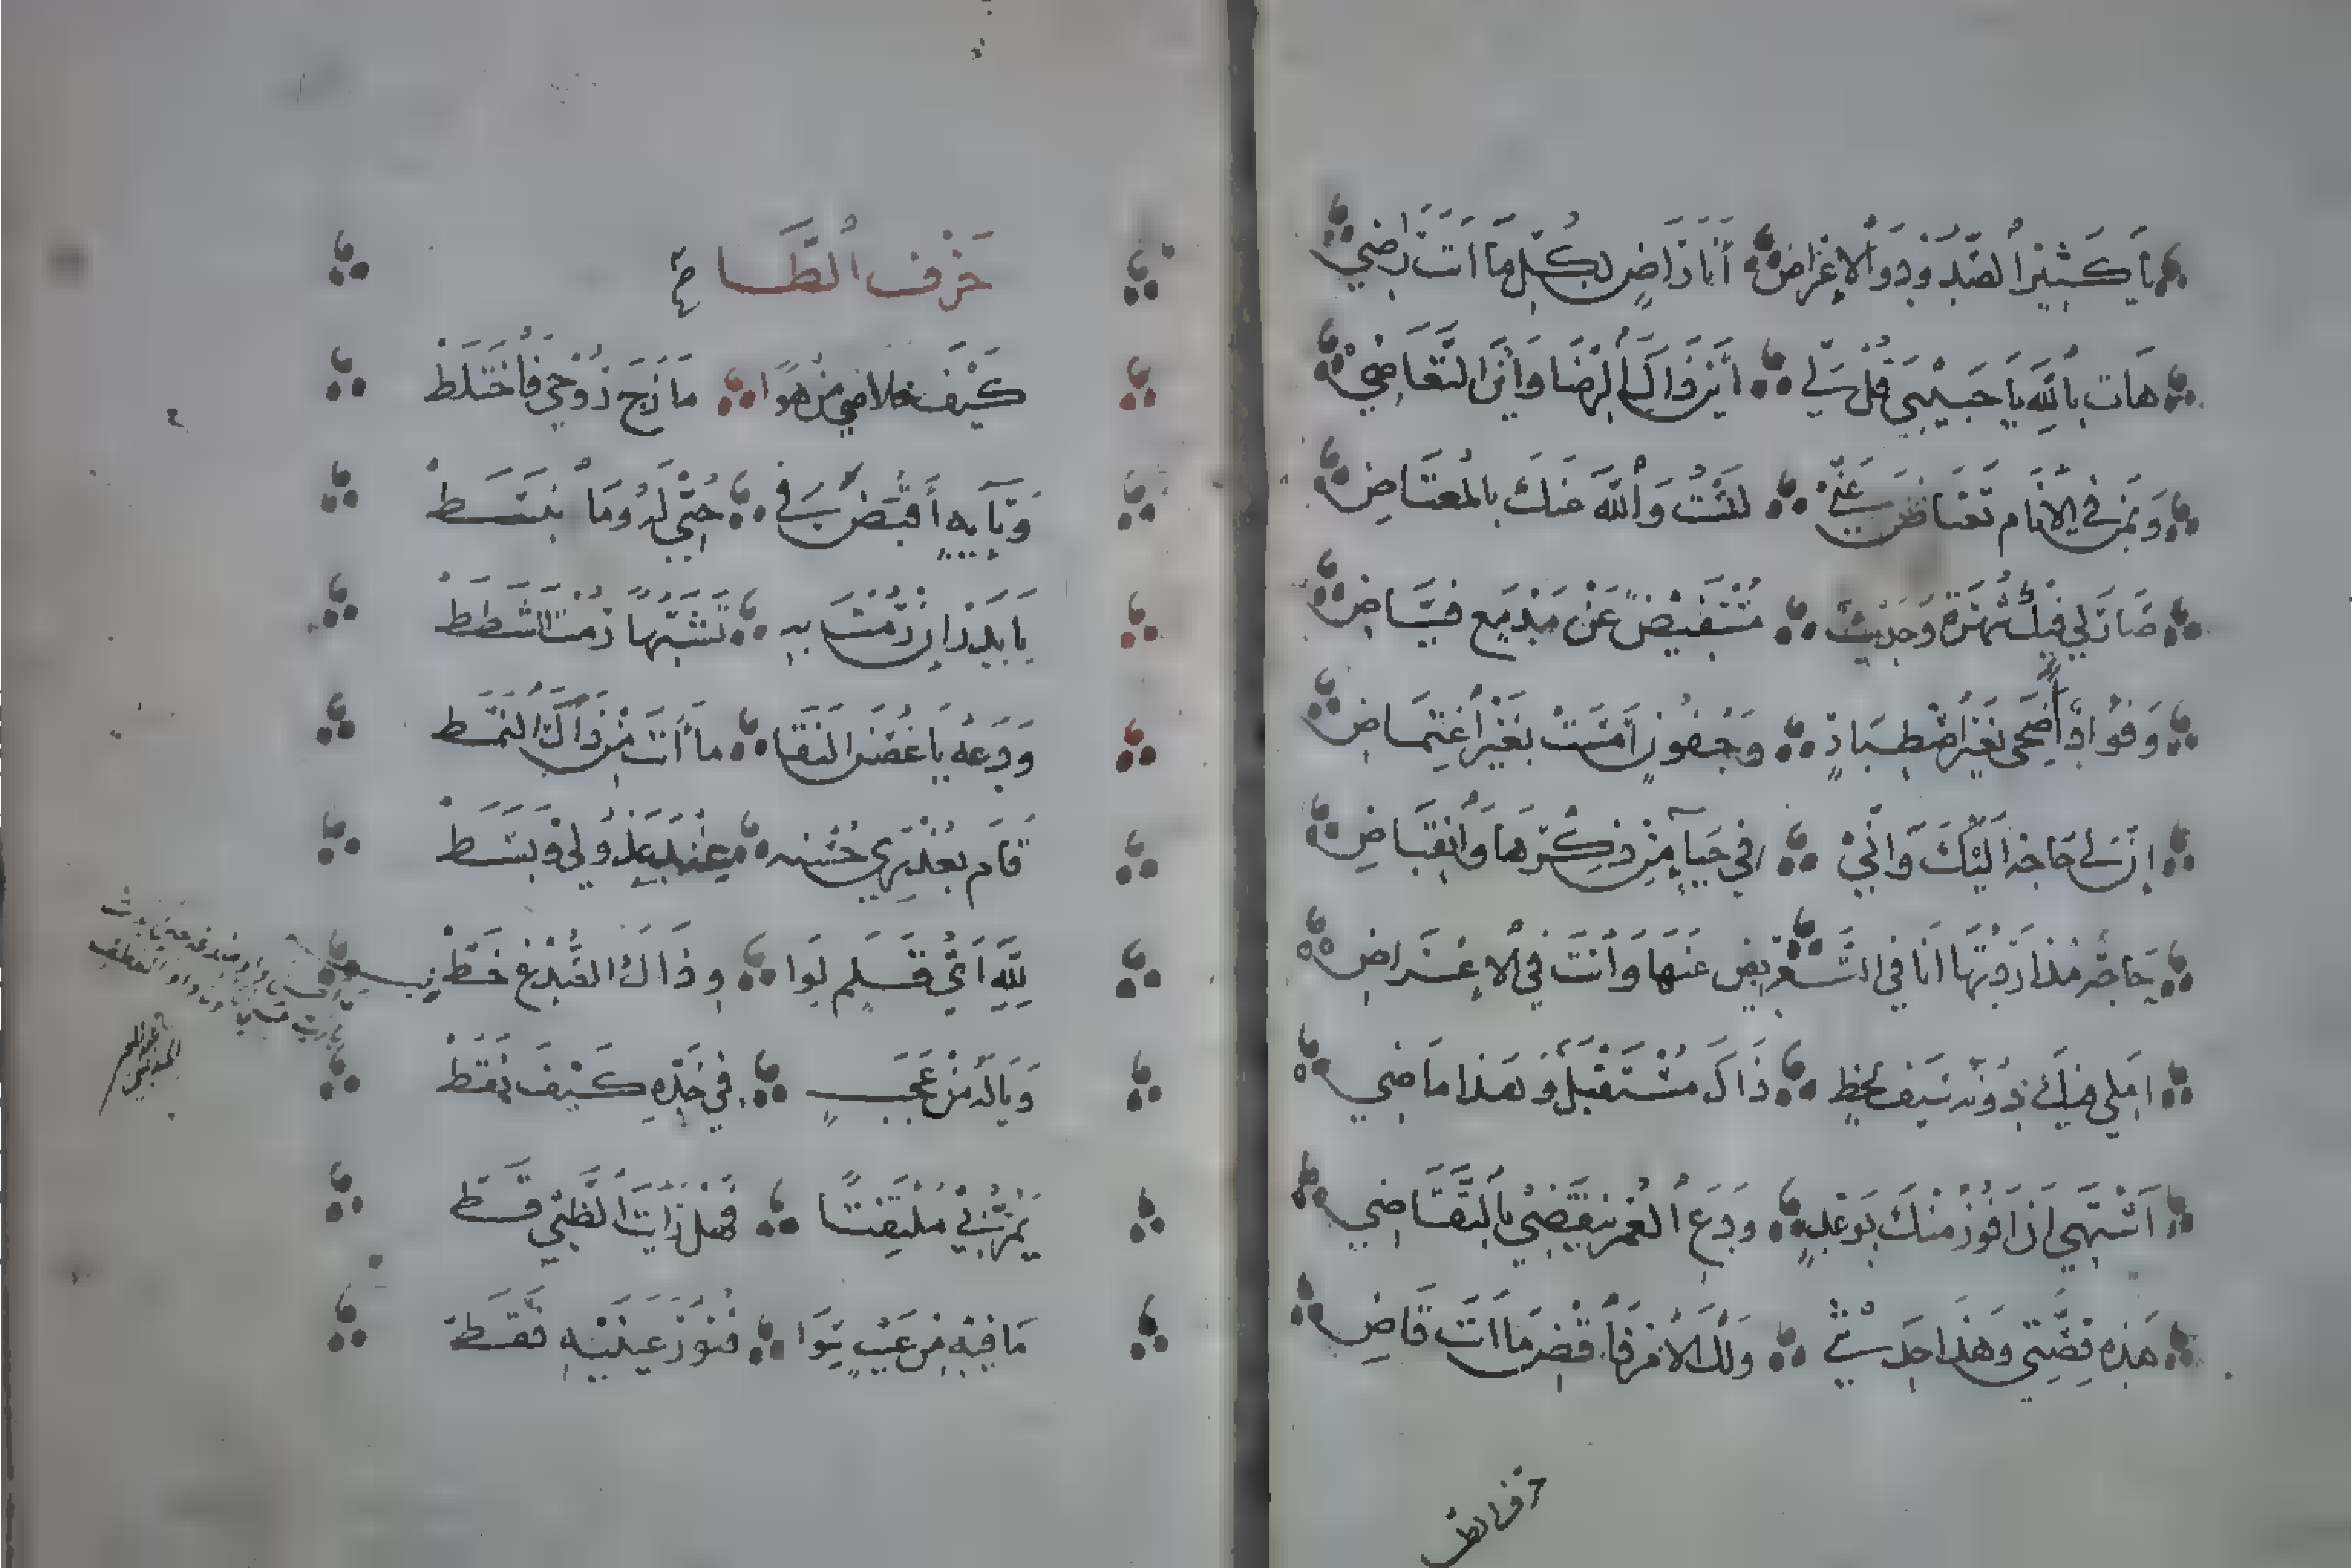 يَا كَثِيْرَ الصَّدِّ وَدُو الإِعْرَاضِ أَنَا رَاضٍ بِكُلِّ مَا أَنْتَ رَاضِي
هَاتِ بِاللَّهِ يَا حَبِيْبِي قُلْ لِي أَيْنَ ذَاكَ الرِّضَا وَأَيْنَ التَّغَاضِيْ
وَبِمَنْ فِي الأَنَامِ تَعْتَاضُ عَنِّيْ لَسْتُ وَاللَّهِ عَنْكَ بِالمُعْتَاضِ
صَارَ لِي فِيْكَ شُهْرَةٌ وَحَدِيْثٌ مُسْتَفِيْضٌ عَنْ مَدْمَعٍ فَيَّاضِ
وَفُؤَادٌ أَضْحَى بِغَيْرِ اصْطِبَارٍ وَجُفُونٍ أَمْسَتْ بِغَيْرِ اغْتِمَاضِ
إِنَّ لِي حَاجَةً إِلَيْكَ وَإِنِّيْ فِي حَيَآءٍ مِنْ ذِكْرِهَا وَانْقِبَاضِ
حَاجَةٌ مُذْ أَرَدْتُهَا أَنَا فِي التَّعْرِيْضِ عَنْهَا وَأَنْتَ فِي الإِعْرَاضِ
أَمَلِي فِيْكَ دُوْنَهُ سَيْفُ لَحْظٍ ذَاكَ مُسْتَقْبَلٌ وَهَذَا مَاضِي
أَشْتَهِي أَنْ أَفُوْزَ مِنْكَ بِوَعْدٍ وَدَعِ العُمْرَ يَنْقَضِيْ بِالتَّقَاضِي
هَذِهِ قِصَّتِي وَهَذَا حَدِيْثِي وَلَكَ الأَمْرُ فَاقْضِ مَا أَنْتَ قَاضِ
حرف الط
حَرْفُ الطَّا
كَيْفَ خَلاصِي مِنْ هَوًا مَازَجَ رُوْحِي فَاخْتَلَطْ
وَتَايِهٍ أَقْبِضُ فِي حُبِّي لَهُ وَمَا بَسَطْ
يَا بَدْرُ إِنْ رُمْتَ بِهِ تَشَبُّهًا رُمْتَ الشَّطَطْ
وَدَعْهُ يَا غُصْنَ النَّقَا مَا أَنْتَ مِنْ ذَاكَ النَّمَطْ
قَامَ بِعُذْرِي حُسْنُهُ عِنْدَ عَذُولِي وَبَسَطْ
لِلَّهِ أَيُّ قَلَمٍ لِوَاوِ ذَاكَ الصُّدْغِ خَطْ
وَيَا لَهُ مِنْ عَجَبٍ فِي خَدِّهِ كَيْفَ نَقَطْ
يَمُرُّ بِي مُلْتَفِتًا فَهَلْ رَأَيْتَ الظَّبْيَ قَطْ
مَا فِيْهِ مِنْ عَيْبٍ سِوَا فُتُوْرِ عَيْنَيْهِ فَقَطْ